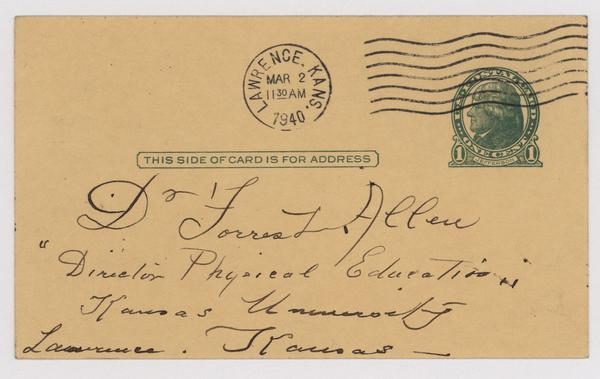 LAWRENCE. KANS.
MAR 2
11 30 AM
1940
U.S. POSTAL CARD
1 ONE CENT 1
JEFFERSON
THIS SIDE OF CARD IS FOR ADDRESS
Dr Forrest Allen
"Director Physical Education"
Kansas University
Lawrence. Kansas —